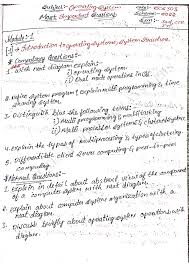 Subject:- Operating System
Most Important Questions
Module-1
Introduction to operating systems, System structures.
* Compulsory Questions:-
1. With neat diagram explain:-
i) operating system.
ii) Dual mode operations in OS.
2. Define system program & explain multiprogramming & time
sharing system
3. Distinguish b/w the following terms:
i) Multiprogramming & multitasking
ii) Multi processor systems & clustered systems
4. Explain the types of multiprocessing & types of clustering
5. Differentiate client server computing & peer-to-peer
computing.
* Normal Questions:-
1. explain in detail about abstract view of the component
of a computer system with neat diagram.
2. explain about computer system organization with a
neat diagram.
3. Discuss briefly about operating system operations with
diagram.